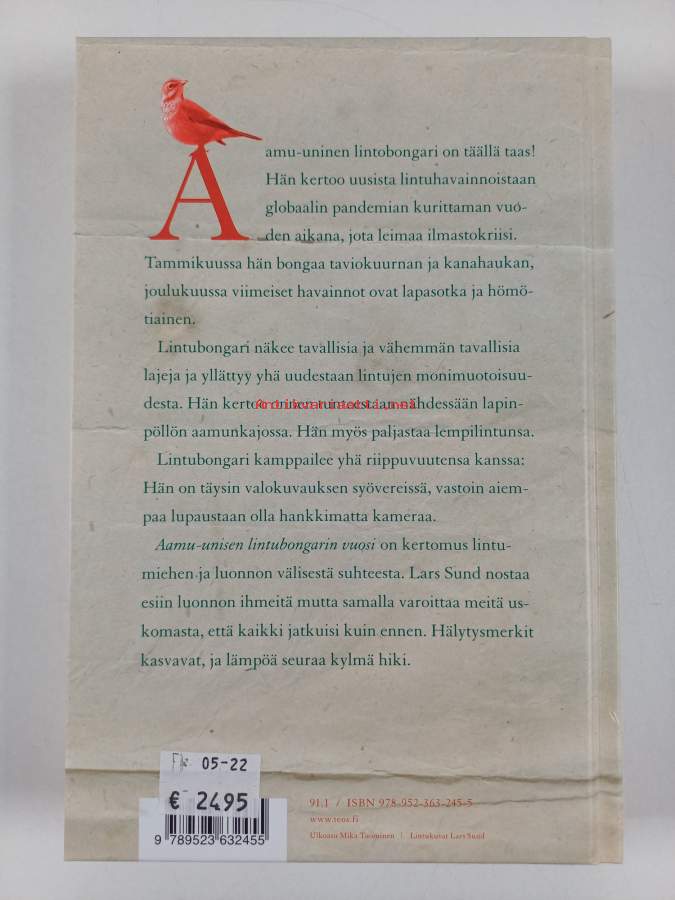 Aamu-uninen lintobongari on täällä taas!
Hän kertoo uusista lintuhavainnoistaan
globaalin pandemian kurittaman vuo-
den aikana, jota leimaa ilmastokriisi.
Tammikuussa hän bongaa taviokuurnan ja kanahaukan,
joulukuussa viimeiset havainnot ovat lapasotka ja hömö-
tiainen.
Lintubongari näkee tavallisia ja vähemmän tavallisia
lajeja ja yllättyy yhä uudestaan lintujen monimuotoisuu-
desta. Hän kertoo nähdessään lapin-
Antikvariaatti.net
pöllön aamunkajossa. Hän myös paljastaa lempilintunsa.
Lintubongari kamppailee yhä riippuvuutensa kanssa:
Hän on täysin valokuvauksen syövereissä, vastoin aiem-
paa lupaustaan olla hankkimatta kameraa.
Aamu-unisen lintubongarin vuosi on kertomus lintu-
miehen ja luonnon välisestä suhteesta. Lars Sund nostaa
esiin luonnon ihmeitä mutta samalla varoittaa meitä us-
komasta, että kaikki jatkuisi kuin ennen. Hälytysmerkit
kasvavat, ja lämpöä seuraa kylmä hiki.
05-22
€ 24,95
91.1 / ISBN 978-952-363-245-5
www.teos.fi
Ulkoasu Mika Tuominen | Lintukuvat Lars Sund
9 789523 632455